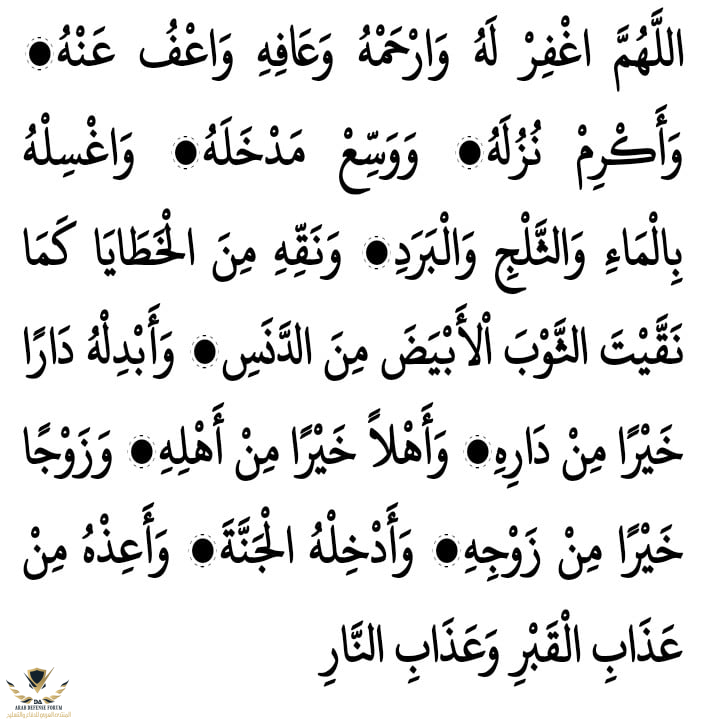 اللَّهُمَّ اغْفِرْ لَهُ وَارْحَمْهُ وَعَافِهِ وَاعْفُ عَنْهُ●
وَأَكْرِمْ نُزُلَهُ● وَوَسِّعْ مَدْخَلَهُ● وَاغْسِلْهُ
بِالْمَاءِ وَالثَّلْجِ وَالْبَرَدِ● وَنَقِّهِ مِنَ الْخَطَايَا كَمَا
نَقَّيْتَ الثَّوْبَ اْلأَبْيَضَ مِنَ الدَّنَسِ● وَأَبْدِلْهُ دَارًا
خَيْرًا مِنْ دَارِهِ● وَأَهْلاً خَيْرًا مِنْ أَهْلِهِ● وَزَوْجًا
خَيْرًا مِنْ زَوْجِهِ● وَأَدْخِلْهُ الْجَنَّةَ● وَأَعِذْهُ مِنْ
عَذَابِ الْقَبْرِ وَعَذَابِ النَّارِ
DA
ARAB DEFENSE FORUM
المنتدى العربي للدفاع والتسليح